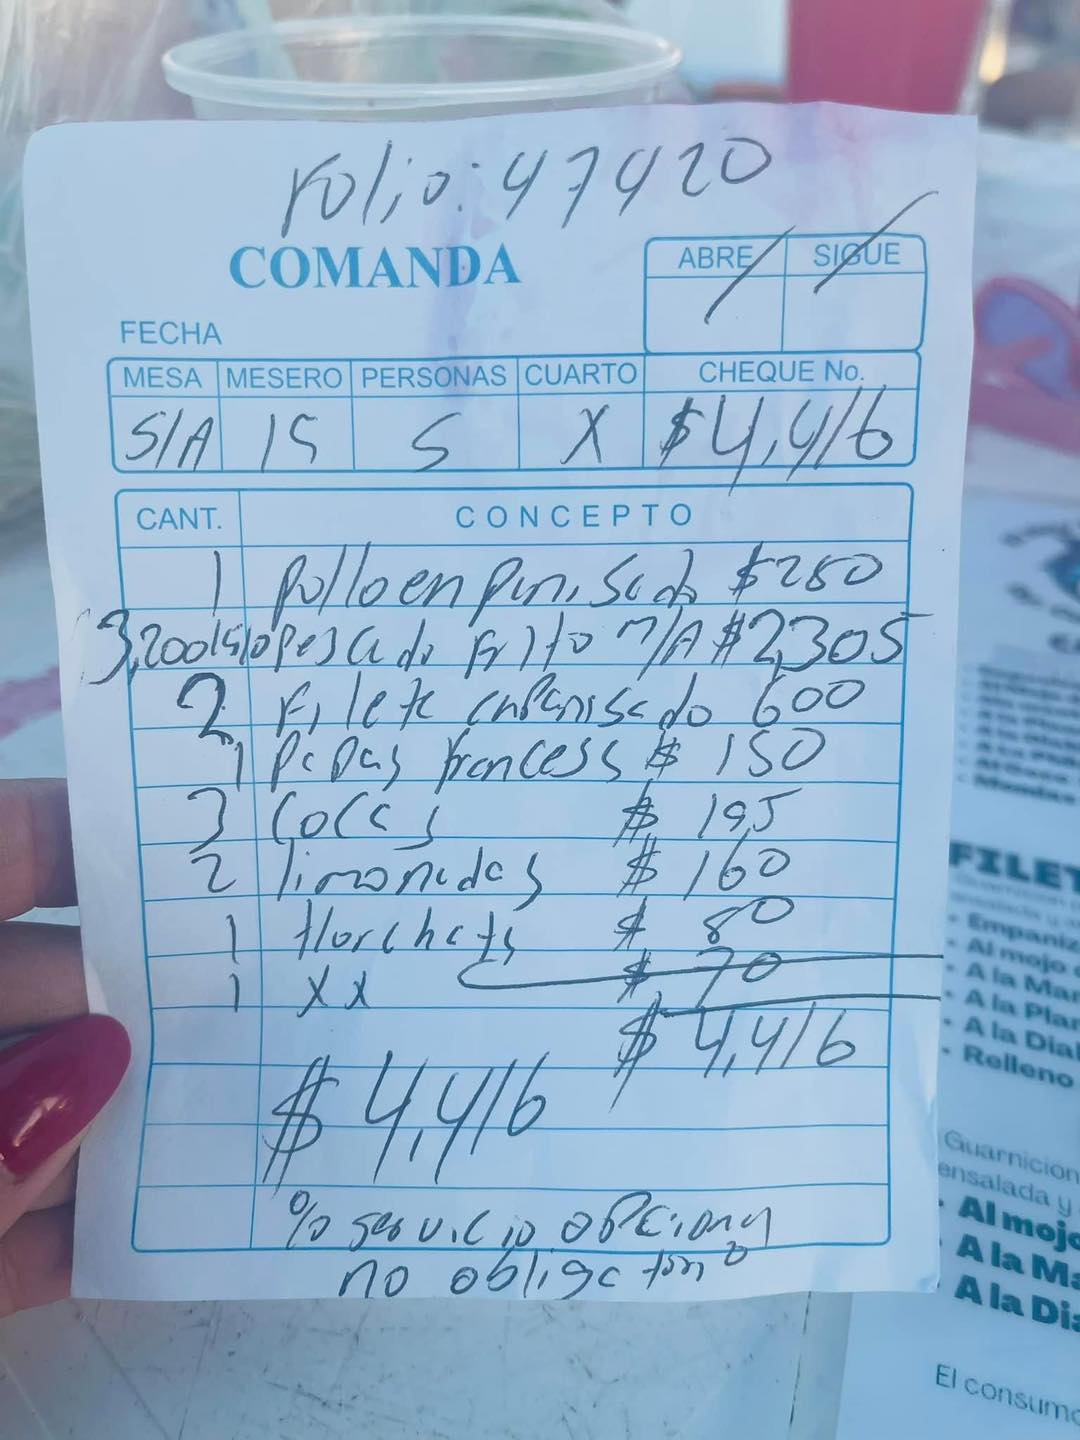 Folio: 47420
COMANDA
ABRE SIGUE
FECHA
MESA MESERO PERSONAS CUARTO CHEQUE No.
S/A 15 5 X $4,416
CANT. CONCEPTO
1 pollo enpanisado $250
pescado frito M/A $2,305
2 Filete enpanisado 600
1 papas francesas $ 150
3 Cocas $ 195
2 limonadas $ 160
1 Horchata $ 80
1 XX $ 70
$ 4,416
$ 4,416
% servicio opcional
no obligatorio
FILET
Empaniz
Al mojo
A la Mar
A la Plan
A la Diab
Relleno
Guarnicion
ensalada y
Al mojo
A la Ma
A la Dia
El consumo